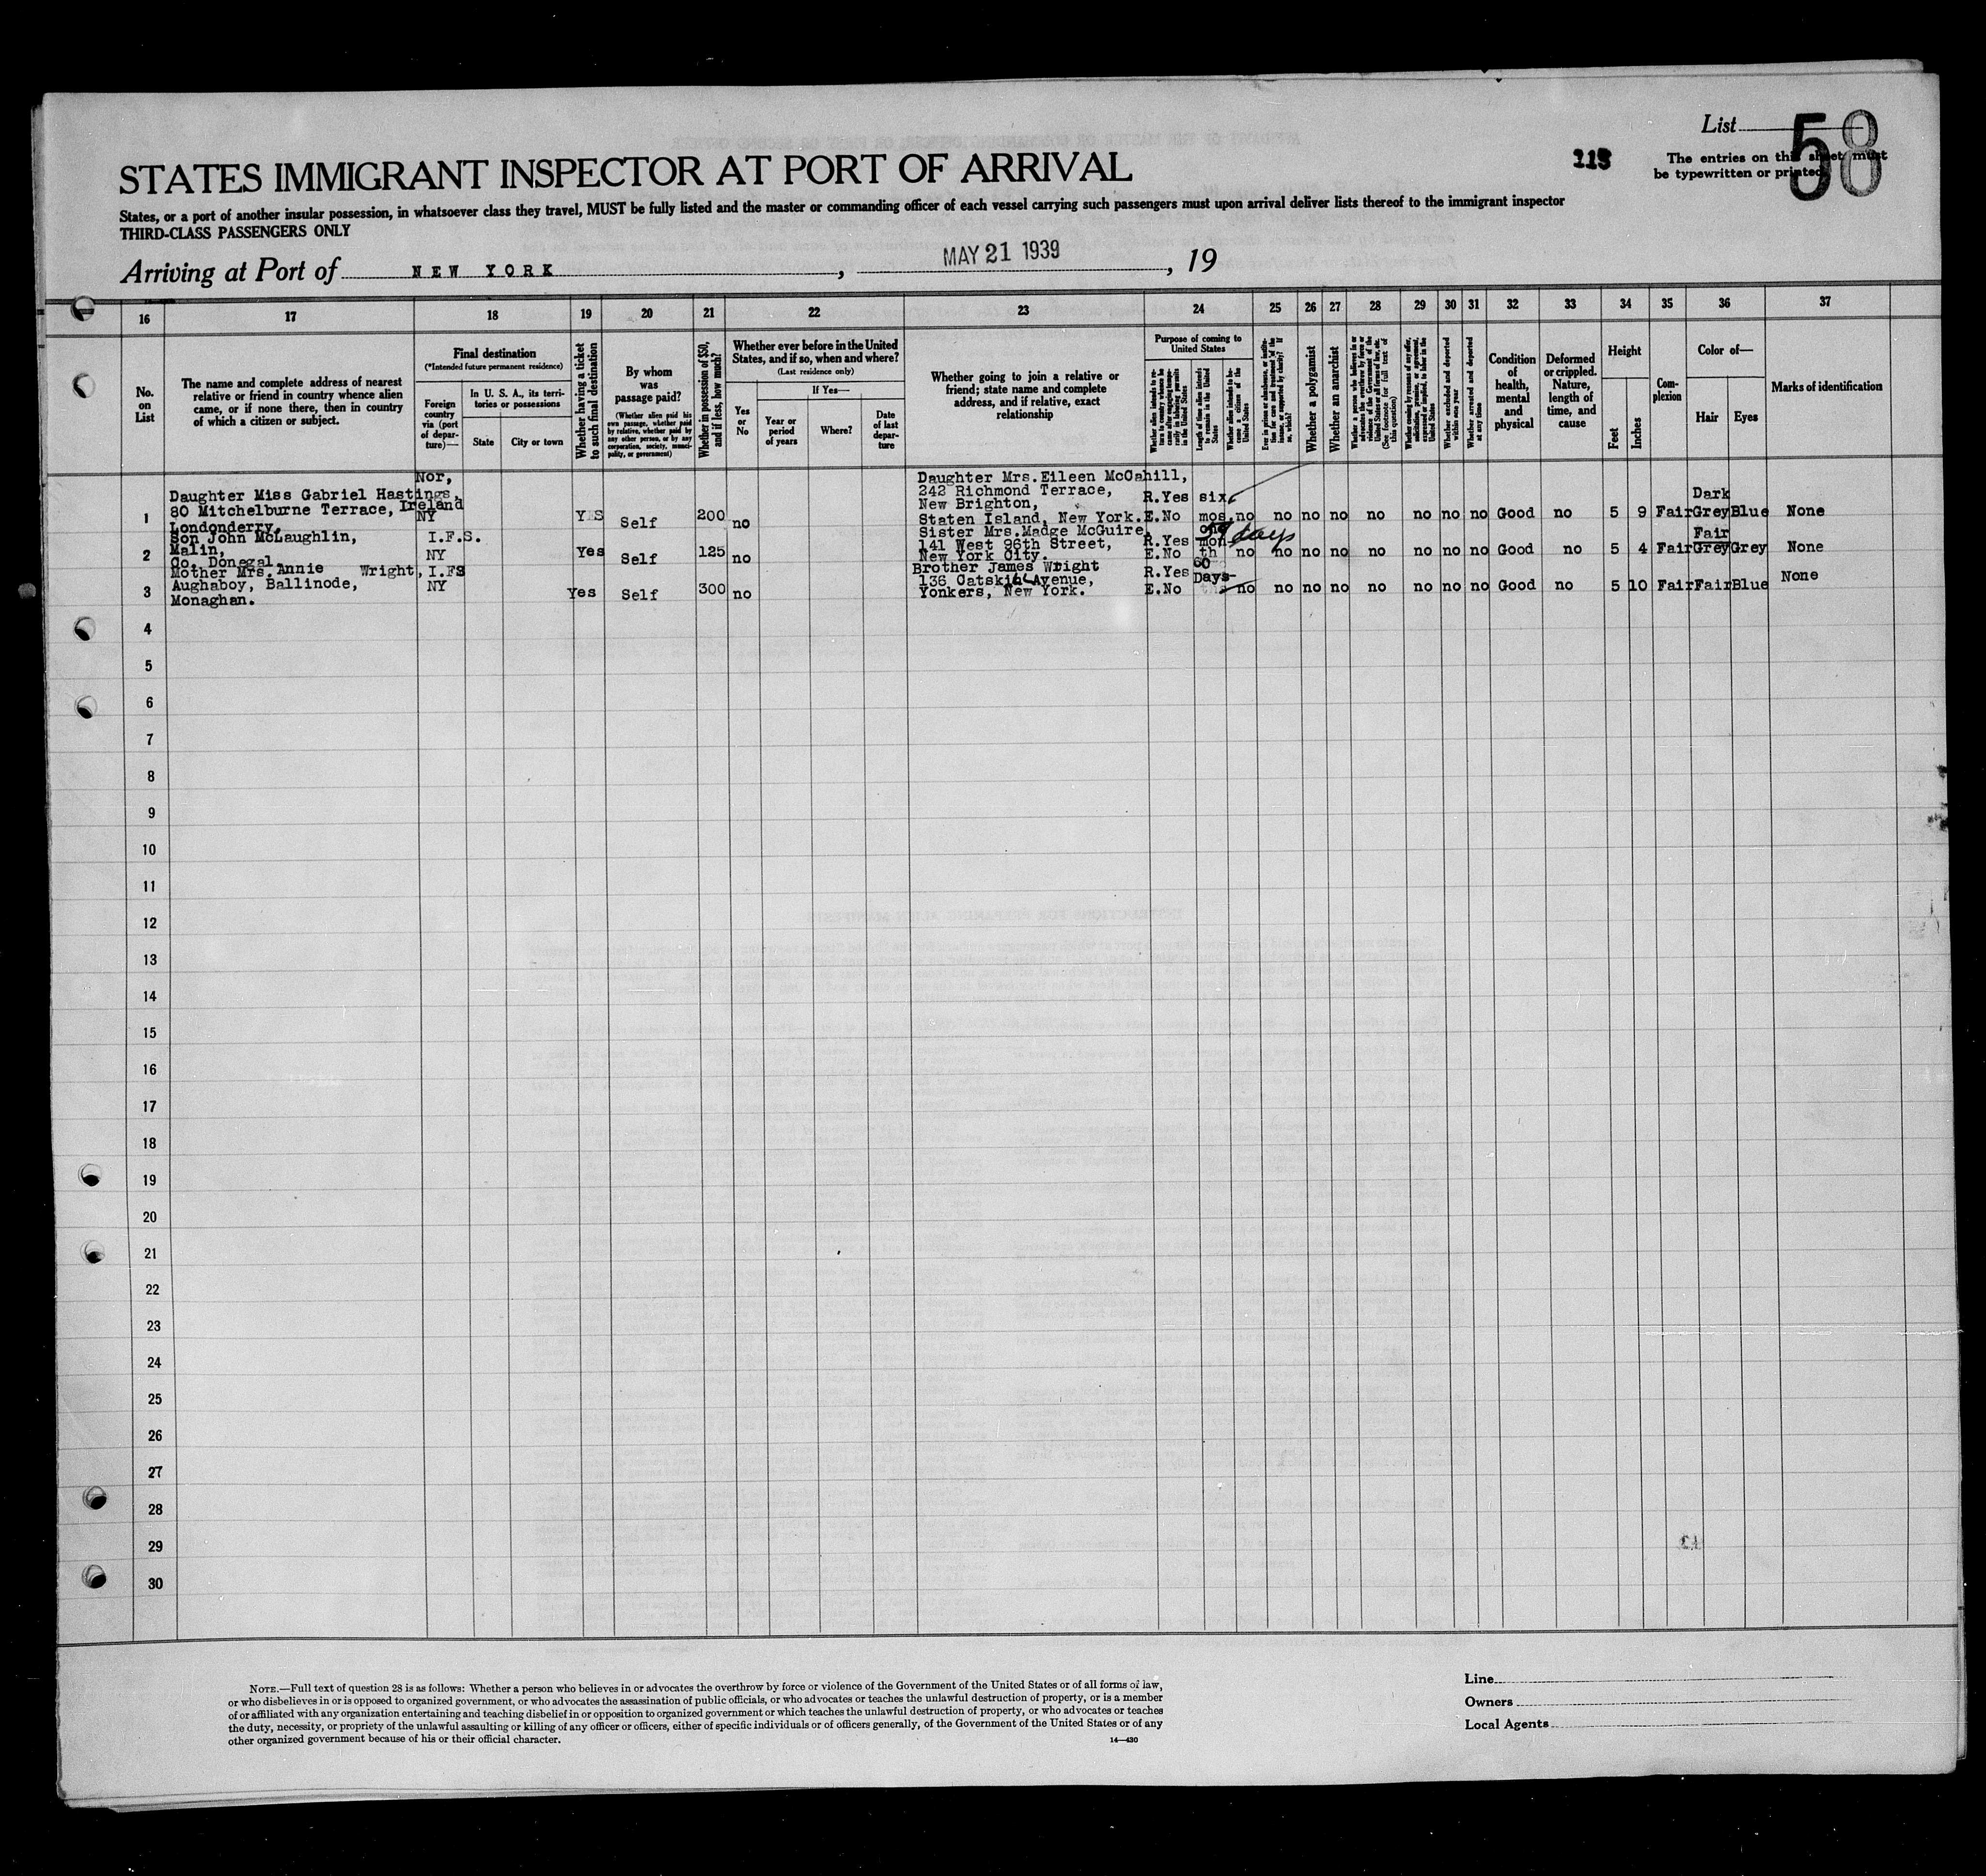 List 58
STATES IMMIGRANT INSPECTOR AT PORT OF ARRIVAL
The entries on this sheet must
be typewritten or printed
States, or a port of another insular possession, in whatsoever class they travel, MUST be fully listed and the master or commanding officer of each vessel carrying such passengers must upon arrival deliver lists thereof to the immigrant inspector
THIRD-CLASS PASSENGERS ONLY
Arriving at Port of NEW YORK, MAY 21 1939, 19
16 17 18 19 20 21 22 23 24 25 26 27 28 29 30 31 32 33 34 35 36 37
No.
on
List
The name and complete address of nearest
relative or friend in country whence alien
came, or if none there, then in country
of which a citizen or subject.
Final destination
(*Intended future permanent residence)
Foreign
country
via (port
of depar-
ture)—
In U. S. A., its terri-
tories or possessions
State
City or town
Whether having a ticket
to such final destination
By whom
was
passage paid?
(Whether alien paid his
own passage, whether paid
by relative, whether paid by
any other person, or by any
corporation, society, munici-
pality, or government)
Whether in possession of $50,
and if less, how much?
Whether ever before in the United
States, and if so, when and where?
(Last residence only)
Yes
or
No
If Yes—
Year or
period
of years
Where?
Date
of last
depar-
ture
Whether going to join a relative or
friend; state name and complete
address, and if relative, exact
relationship
Purpose of coming to
United States
Length of time alien intends
to remain in the United
States
Whether alien intends to be-
come a citizen of the
United States
Whether a polygamist
Whether an anarchist
(See footnote for full text of
this question)
Whether excluded and deported
within one year
Whether arrested and deported
at any time
Condition
of
health,
mental
and
physical
Deformed
or crippled.
Nature,
length of
time, and
cause
Height
Feet
Inches
Com-
plexion
Color of—
Hair
Eyes
Marks of identification
1
Daughter Miss Gabriel Hastings,
80 Mitchelburne Terrace,
Londonderry.
Nor,
Ireland
NY
YES Self 200 no
Daughter Mrs.Eileen McCahill,
242 Richmond Terrace,
New Brighton,
Staten Island, New York.
R.Yes
E.No
six
mos.
no no no no no no no no Good no 5 9 Fair
Dark
Grey Blue None
2
Son John McLaughlin,
Malin,
Co. Donegal.
I.F.S.
NY
Yes Self 125 no
Sister Mrs.Madge McGuire,
141 West 96th Street,
New York City.
R.Yes
E.No
one
mon
th
59 days
no no no no no no no no Good no 5 4 Fair
Fair
Grey Grey None
3
Mother Mrs. Annie Wright,
Aughaboy, Ballinode,
Monaghan.
I.FS
NY
Yes Self 300 no
Brother James Wright
136 Catskill Avenue,
Yonkers, New York.
R.Yes
E.No
60
Days
no no no no no no no no Good no 5 10 Fair Fair Blue None
4
5
6
7
8
9
10
11
12
13
14
15
16
17
18
19
20
21
22
23
24
25
26
27
28
29
30
NOTE.—Full text of question 28 is as follows: Whether a person who believes in or advocates the overthrow by force or violence of the Government of the United States or of all forms of law,
or who disbelieves in or is opposed to organized government, or who advocates the assassination of public officials, or who advocates or teaches the unlawful destruction of property, or is a member
of or affiliated with any organization entertaining and teaching disbelief in or opposition to organized government or which teaches the unlawful destruction of property, or who advocates or teaches
the duty, necessity, or propriety of the unlawful assaulting or killing of any officer or officers, either of specific individuals or of officers generally, of the Government of the United States or of any
other organized government because of his or their official character.
14—430
Line
Owners
Local Agents